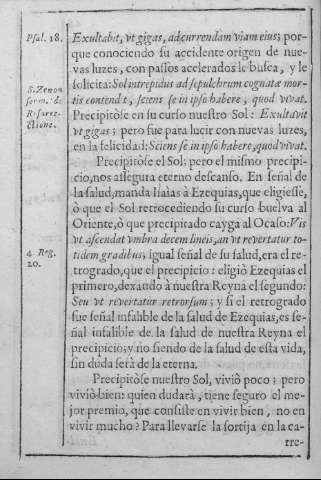 Psal. 18.
Exultabit, vt gigas, adcurrendam viam eius; por-
que conociendo su accidente origen de nue-
vas luzes, con passos acelerados le busca, y le
S. Zenon
serm. de
Resurre-
ctione.
solicita: Sol intrepidus ad sepulchrum cognatæ mor-
tis contendit, sciens se in ipso habere, quod vivat.
Precipitòse en su curso nuestro Sol: Exultavit
vt gigas; pero fue para lucir con nuevas luzes,
en la felicidad: Sciens se in ipso habere, quod vivat.
Precipitòse el Sol; pero el mismo precipi-
cio, nos assegura eterno descanso. En señal de
la salud, manda Isaias à Ezequias, que eligiesse,
ò que el Sol retrocediendo su curso buelva al
Oriente, ò que precipitado cayga al Ocaso: Vis
vt ascendat vmbra decem lineis, an vt revertatur to-
4. Reg.
20.
tidem gradibus; igual señal de su salud, era el re-
trogrado, que el precipicio: eligiò Ezequias el
primero, dexando à nuestra Reyna el segundo:
Seu vt revertatur retrorsum; y si el retrogrado
fue señal infalible de la salud de Ezequias, es se-
ñal infalible de la salud de nuestra Reyna el
precipicio; y no siendo de la salud de esta vida,
sin duda serà de la eterna.
Precipitòse nuestro Sol, viviò poco; pero
viviò bien: quien dudarà, tiene seguro el me-
jor premio, que consiste en vivir bien, no en
vivir mucho? Para llevarse la sortija en la ca-
rre-